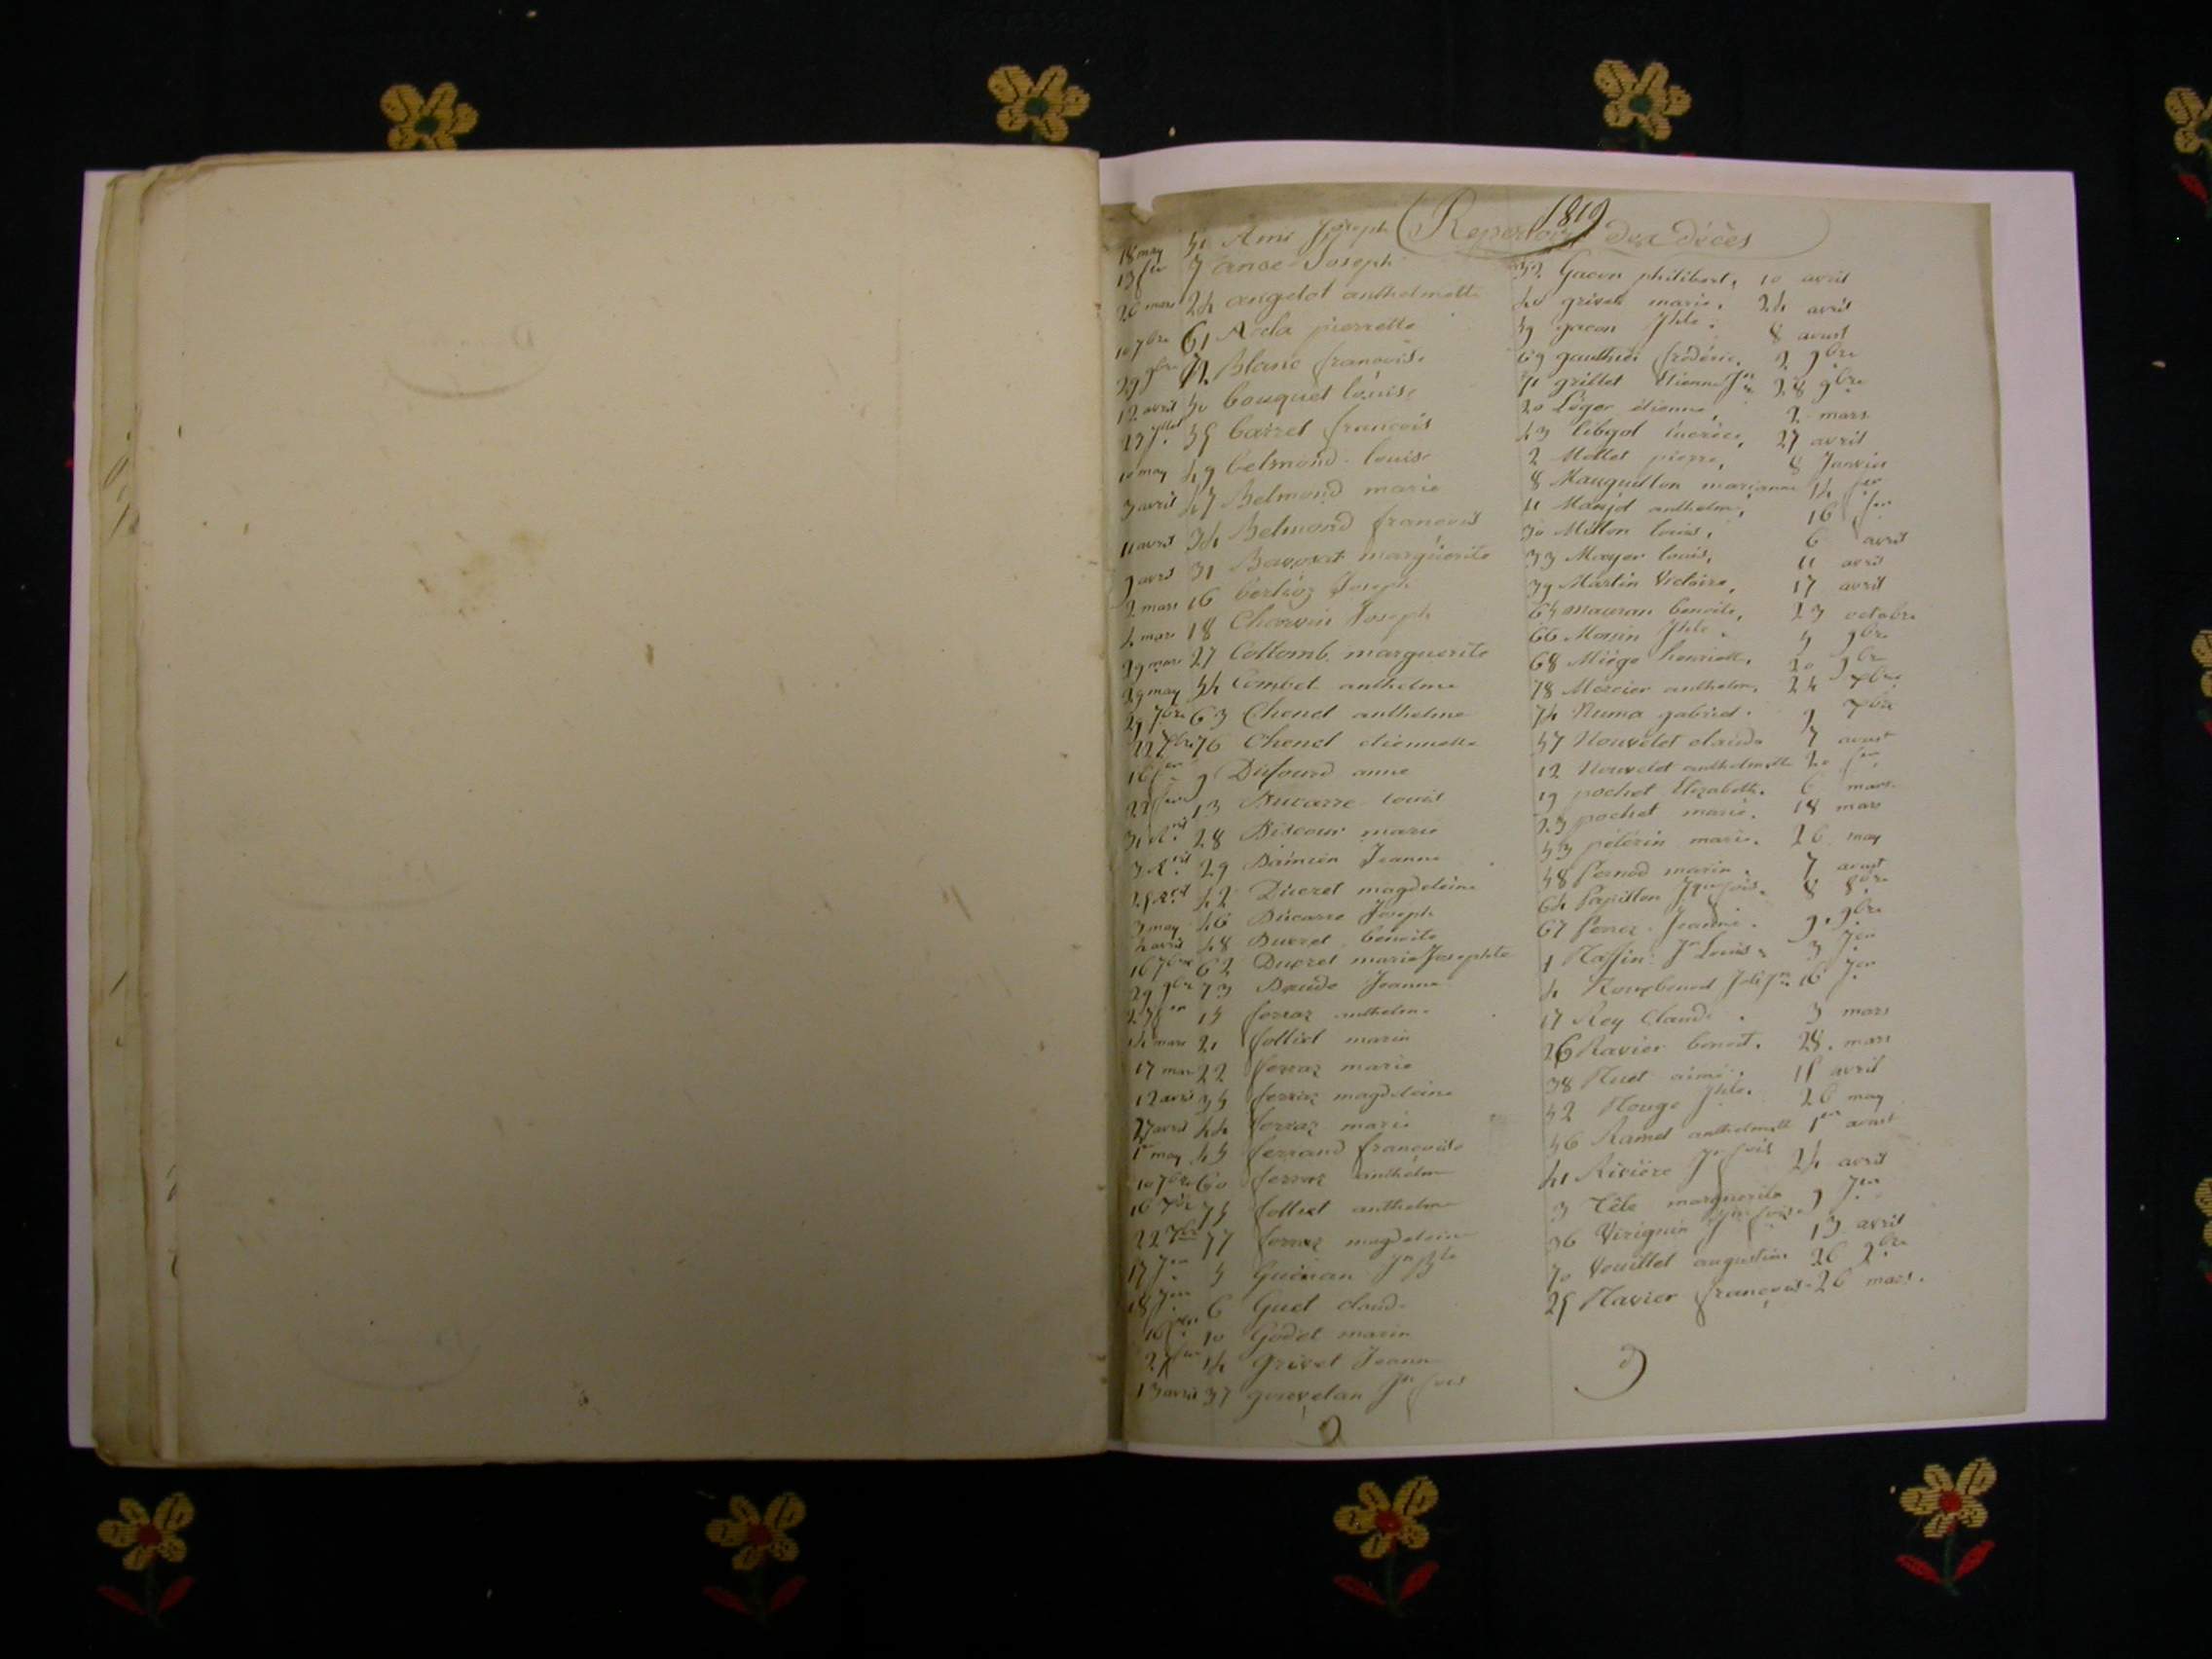 1819
Repertoire des décès
18 may 51 Ami Joseph
13 fer 7 ance Joseph
26 mars 24 angelot anthelmette
10 7bre 61 Acla pierrette
29 9bre 72 Blanc francoise
12 avril 50 bouquet louise
27 Jllet 55 barret francois
10 may 49 belmond louise
3 avril 47 Belmond marie
11 avril 34 Belmond francois
9 avril 31 Bavoxat marguerite
2 mars 16 Joseph
4 mars 18 Charvin Joseph
29 mars 27 Collomb marguerite
29 may 54 Combet anthelme
29 7bre 63 Chenel anthelme
22 Xbre 76 Chenel etiennette
16 fer 9 Dufourd anne
22 fer 13 Ducarre louis
28 marie
29 Damien Jeanne
42 Ducret magdeleine
3 may 46 Ducarre Joseph
48 Ducret benoite
16 7bre 62 Ducret marie Josephte
29 9bre 73 Baude Jeanne
15 ferraz anthelme
14 mars 21 folliet marin
17 mars 22 ferraz marie
12 avril 35 magdeleine
27 avril 44 ferraz marie
1er may 45 ferrand francoise
10 7bre 60 ferraz anthelme
16 Xbre 75 folliet anthelme
22 Xbre 77 ferraz magdeleine
17 Jer 5 Guinan Jn Bte
18 Jer 6 Guet claude
16 fer 10 Godet marin
27 fer 14 Grivel Jeanne
13 avril 37 Jn fois
32 Gacon philibert, 10 avril
40 grivel marie, 24 avril
59 gacon Jhte. 8 aoust
69 gauthier frédéric, 9bre
71 grillet Etienne Jn 28 9bre
20 Léger étienne, 2 mars
43 libgol 27 avril
2 Mollet pierre, 8 Janvier
8 Mauguillon marianne 14 fer
11 anthelme, 16 fer
30 Millon louis, 6 avril
33 Mayer louis, 11 avril
39 Martin Victoire, 17 avril
65 mauran benoite, 23 octobre
66 Monin Jhte. 5 9bre
68 Miège henriette, 20 9bre
78 Mercier anthelme, 24 Xbre
74 Numa gabriel. 9 Xbre
57 Nouvelet claude 7 aoust
12 Nouvelet anthelmette 20 fer
19 pochet Elizabeth. 6 mars
23 pochet marie. 18 mars
53 pélerin marie. 26 may
58 Pernod marin. 7 aoust
64 Papillon Jn fois. 8 8bre
67 Perraz Jeanne. 9. 9bre
1 Raffin Jn Louis. 3 Jer
4 16 Jer
17 Rey Claude. 3 mars
26 Ravier benoit. 28. mars
38 Ruet aimé. 15 avril
52 Rouge Jhte. 26 may
56 Ramel anthelmette 1er aoust
41 Rivière Jn fois 24 avril
3 Tête marguerite 9 Jer
36 Viriguin Jn fois. 13 avril
70 Vouillet augustine 26 9bre
25 Ravier francois. 26 mars.